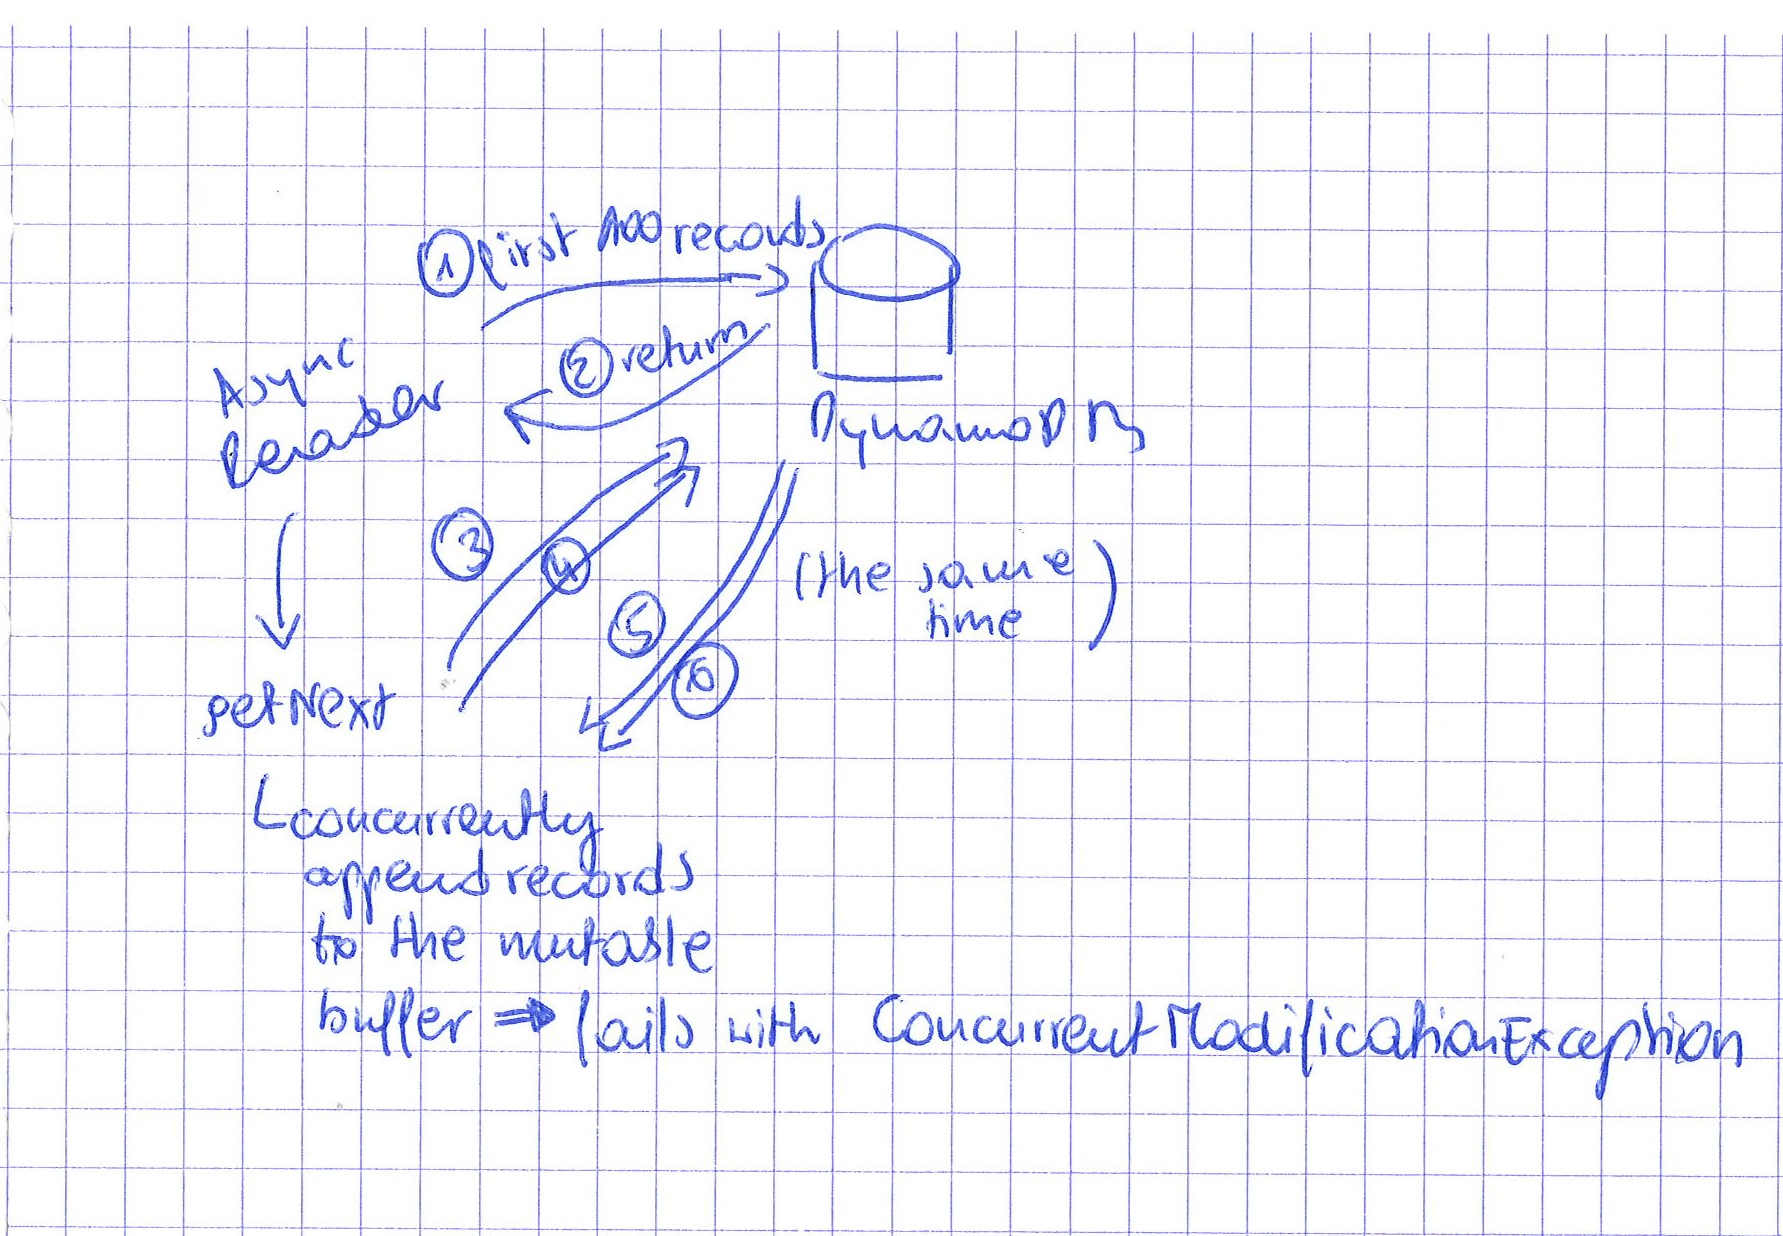 ① first 100 records
② return
Async
Reader
DynamoDB
③
④
⑤
⑥
(the same
time)
getNext
concurrently
append records
to the mutable
buffer ⇒ fails with ConcurrentModificationException